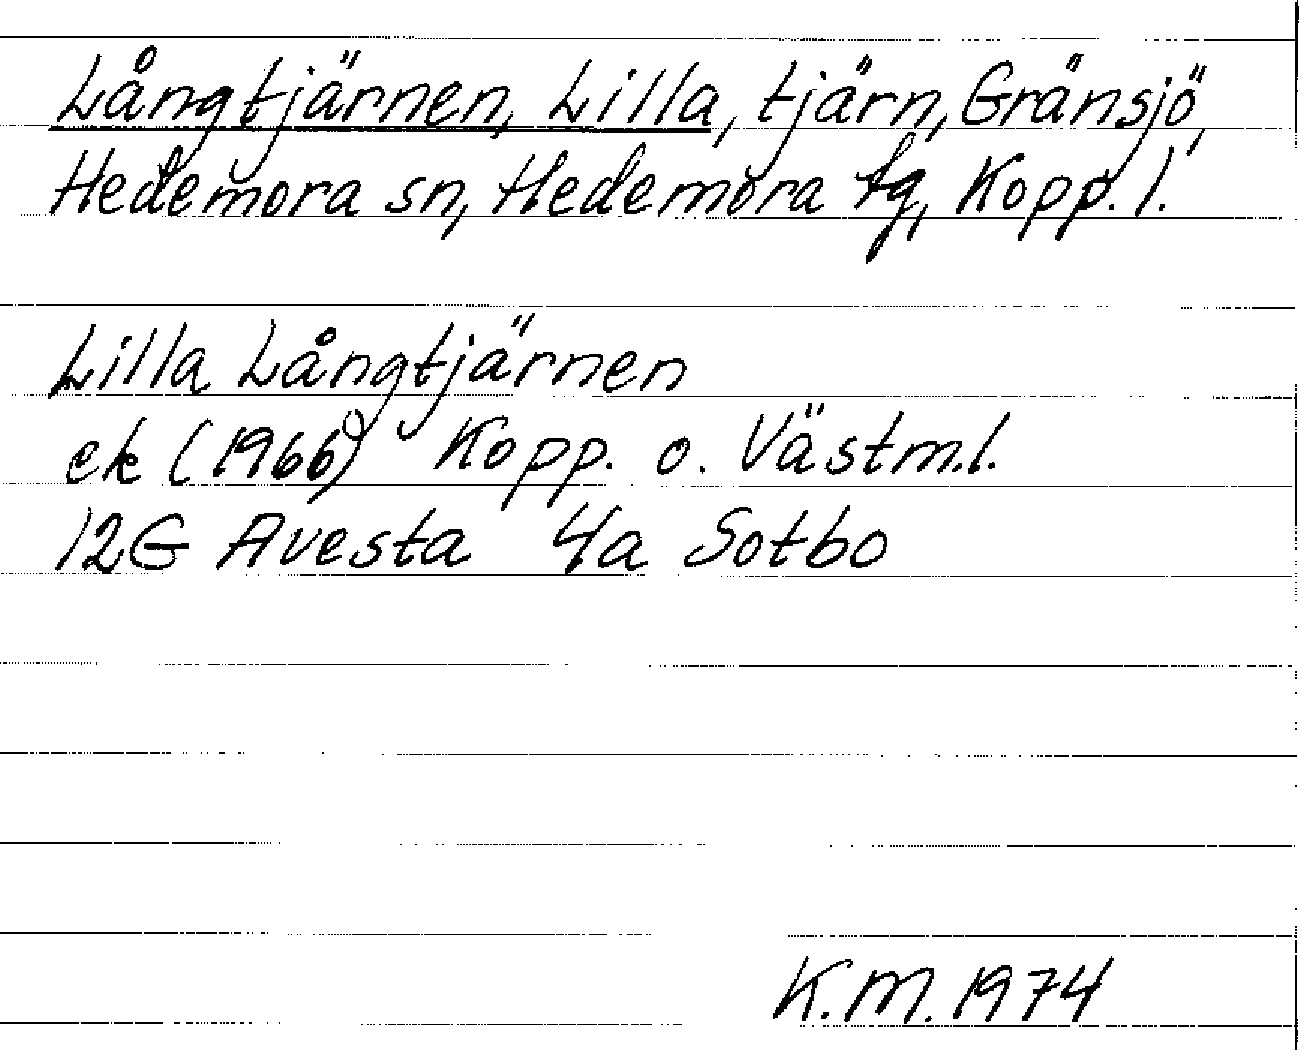 Långtjärnen, Lilla, tjärn, Gränsjö,
Hedemora sn, Hedemora tg, Kopp. l.
Lilla Långtjärnen
ek (1966) Kopp. o. Västm.l.
12G Avesta 4a Sotbo
K.M. 1974